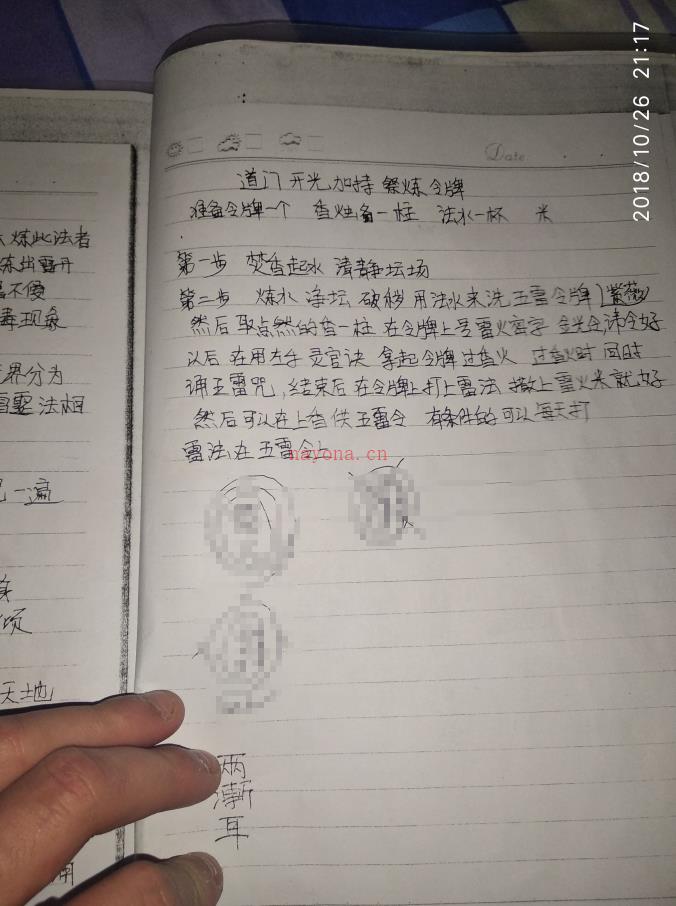 2018/10/26 21:17
Date
道门开光加持祭炼令牌
准备令牌一个 香烛备一柱 法水一杯 米
第一步 焚香起水 清静坛场
第二步 炼水 净坛 破秽 用法水来洗五雷令牌(紫薇)
然后取点然的香一柱 在令牌上 雷火密字 金光令,讳令好
以后在用左手灵官诀 拿起令牌过香火 过香火时 同时
诵五雷咒,结束后在令牌上打上雷法 撒上雷火米就好
然后可以在上香供五雷令 有条件的可以每天打
雷法在五雷令上
nayona.cn
两
渐
耳
炼此法者
炼出雷丹
不傻
毒现象
界分为
雷霆法相
一遍
天地
用